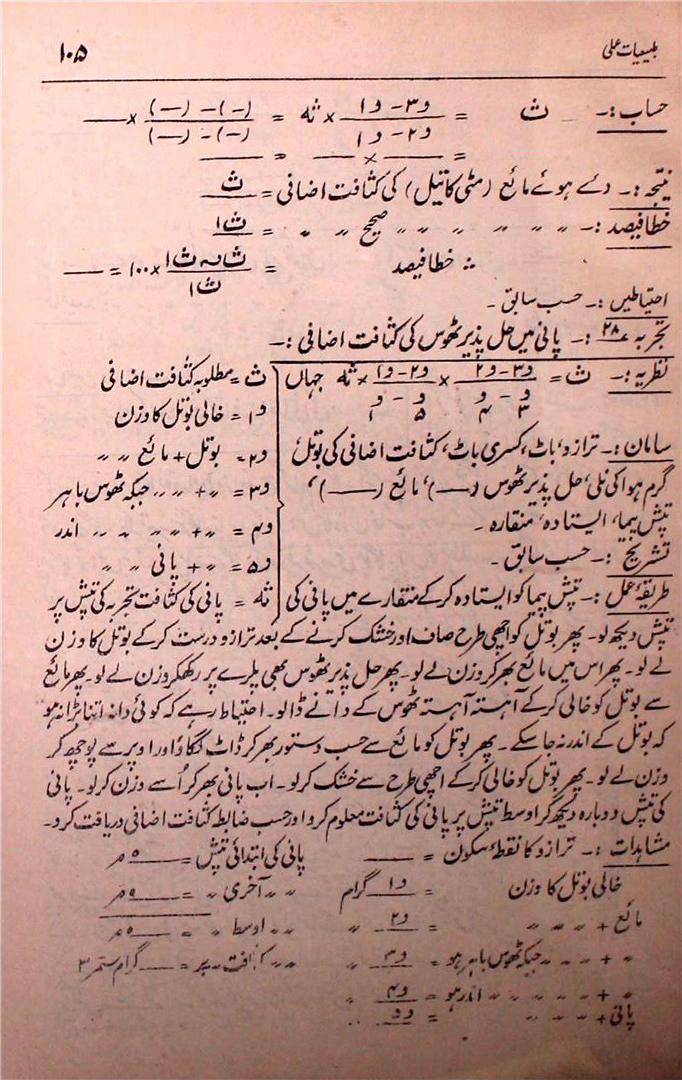 طبیعیات عملی ۱۰۵
حساب :۔ ث = و۳ - و۱ / و۲ - و۱ × ثہ = (—) - (—) / (—) - (—) × —
= — × — = —
نتیجہ :۔ دے ہوئے مائع (مٹی کا تیل) کی کثافت اضافی = ث
خطا فیصد :۔ 〃 〃 〃 〃 〃 صحیح 〃 〃 = ث۱
∴ خطا فیصد = ث ~ ث۱ / ث۱ × ۱۰۰ = —
احتیاطیں :۔ حسب سابق ۔
تجربہ ۲۸ :۔ پانی میں حل پذیر ٹھوس کی کثافت اضافی :۔
نظریہ :۔ ث = و۳ - و۲ / و۳ - و۴ × و۲ - و۱ / و۵ - و۱ × ثہ جہاں
ث = مطلوبہ کثافت اضافی
و۱ = خالی بوتل کا وزن
و۲ = بوتل + مائع 〃 〃
و۳ = 〃 + 〃 〃 جبکہ ٹھوس باہر
و۴ = 〃 + 〃 〃 〃 〃 اندر
و۵ = 〃 + پانی 〃 〃
ثہ = پانی کی کثافت تجربہ کی تپش پر
سامان :۔ ترازو، باٹ، کسری باٹ، کثافت اضافی کی بوتل
گرم ہوا کی نلی، حل پذیر ٹھوس (—)، مائع (—)،
تپش پیما، ایستادہ، منقارہ ۔
تشریح :۔ حسب سابق ۔
طریقۂ عمل :۔ تپش پیما کو ایستادہ کرکے منقارے میں پانی کی
تپش دیکھ لو۔ پھر بوتل کو اچھی طرح صاف اور خشک کرنے کے بعد ترازو درست کرکے بوتل کا وزن
لے لو۔ پھر اس میں مائع بھر کر وزن لے لو۔ پھر حل پذیر ٹھوس بھی پلڑے پر رکھکر وزن لے لو۔ پھر مائع
سے بوتل کو خالی کرکے آہستہ آہستہ ٹھوس کے دانے ڈالو۔ احتیاط رہے کہ کوئی دانہ اتنا بڑا نہ ہو
کہ بوتل کے اندر نہ جا سکے۔ پھر بوتل کو مائع سے حسب دستور بھر کر ڈاٹ لگاؤ اور اوپر سے پوچھ کر
وزن لے لو۔ پھر بوتل کو خالی کرکے اچھی طرح سے خشک کر لو۔ اب پانی بھر کر اُسے وزن کر لو۔ پانی
کی تپش دوبارہ دیکھ کر اوسط تپش پر پانی کی کثافت معلوم کرو اور حسب ضابطہ کثافت اضافی دریافت کرو۔
مشاہدات :۔ ترازو کا نقطۂ سکون = — پانی کی ابتدائی تپش = — °م
خالی بوتل کا وزن = و۱ گرام 〃 〃 آخری 〃 = — °م
مائع + 〃 〃 〃 = و۲ 〃 〃 〃 اوسط 〃 = — °م
〃 + 〃 〃 〃 جبکہ ٹھوس باہر ہو = و۳ 〃 〃 〃 کثافت 〃 پر = — گرام سمر ۳
〃 + 〃 〃 〃 〃 〃 اندر ہو = و۴ 〃
پانی + 〃 〃 〃 = و۵ 〃